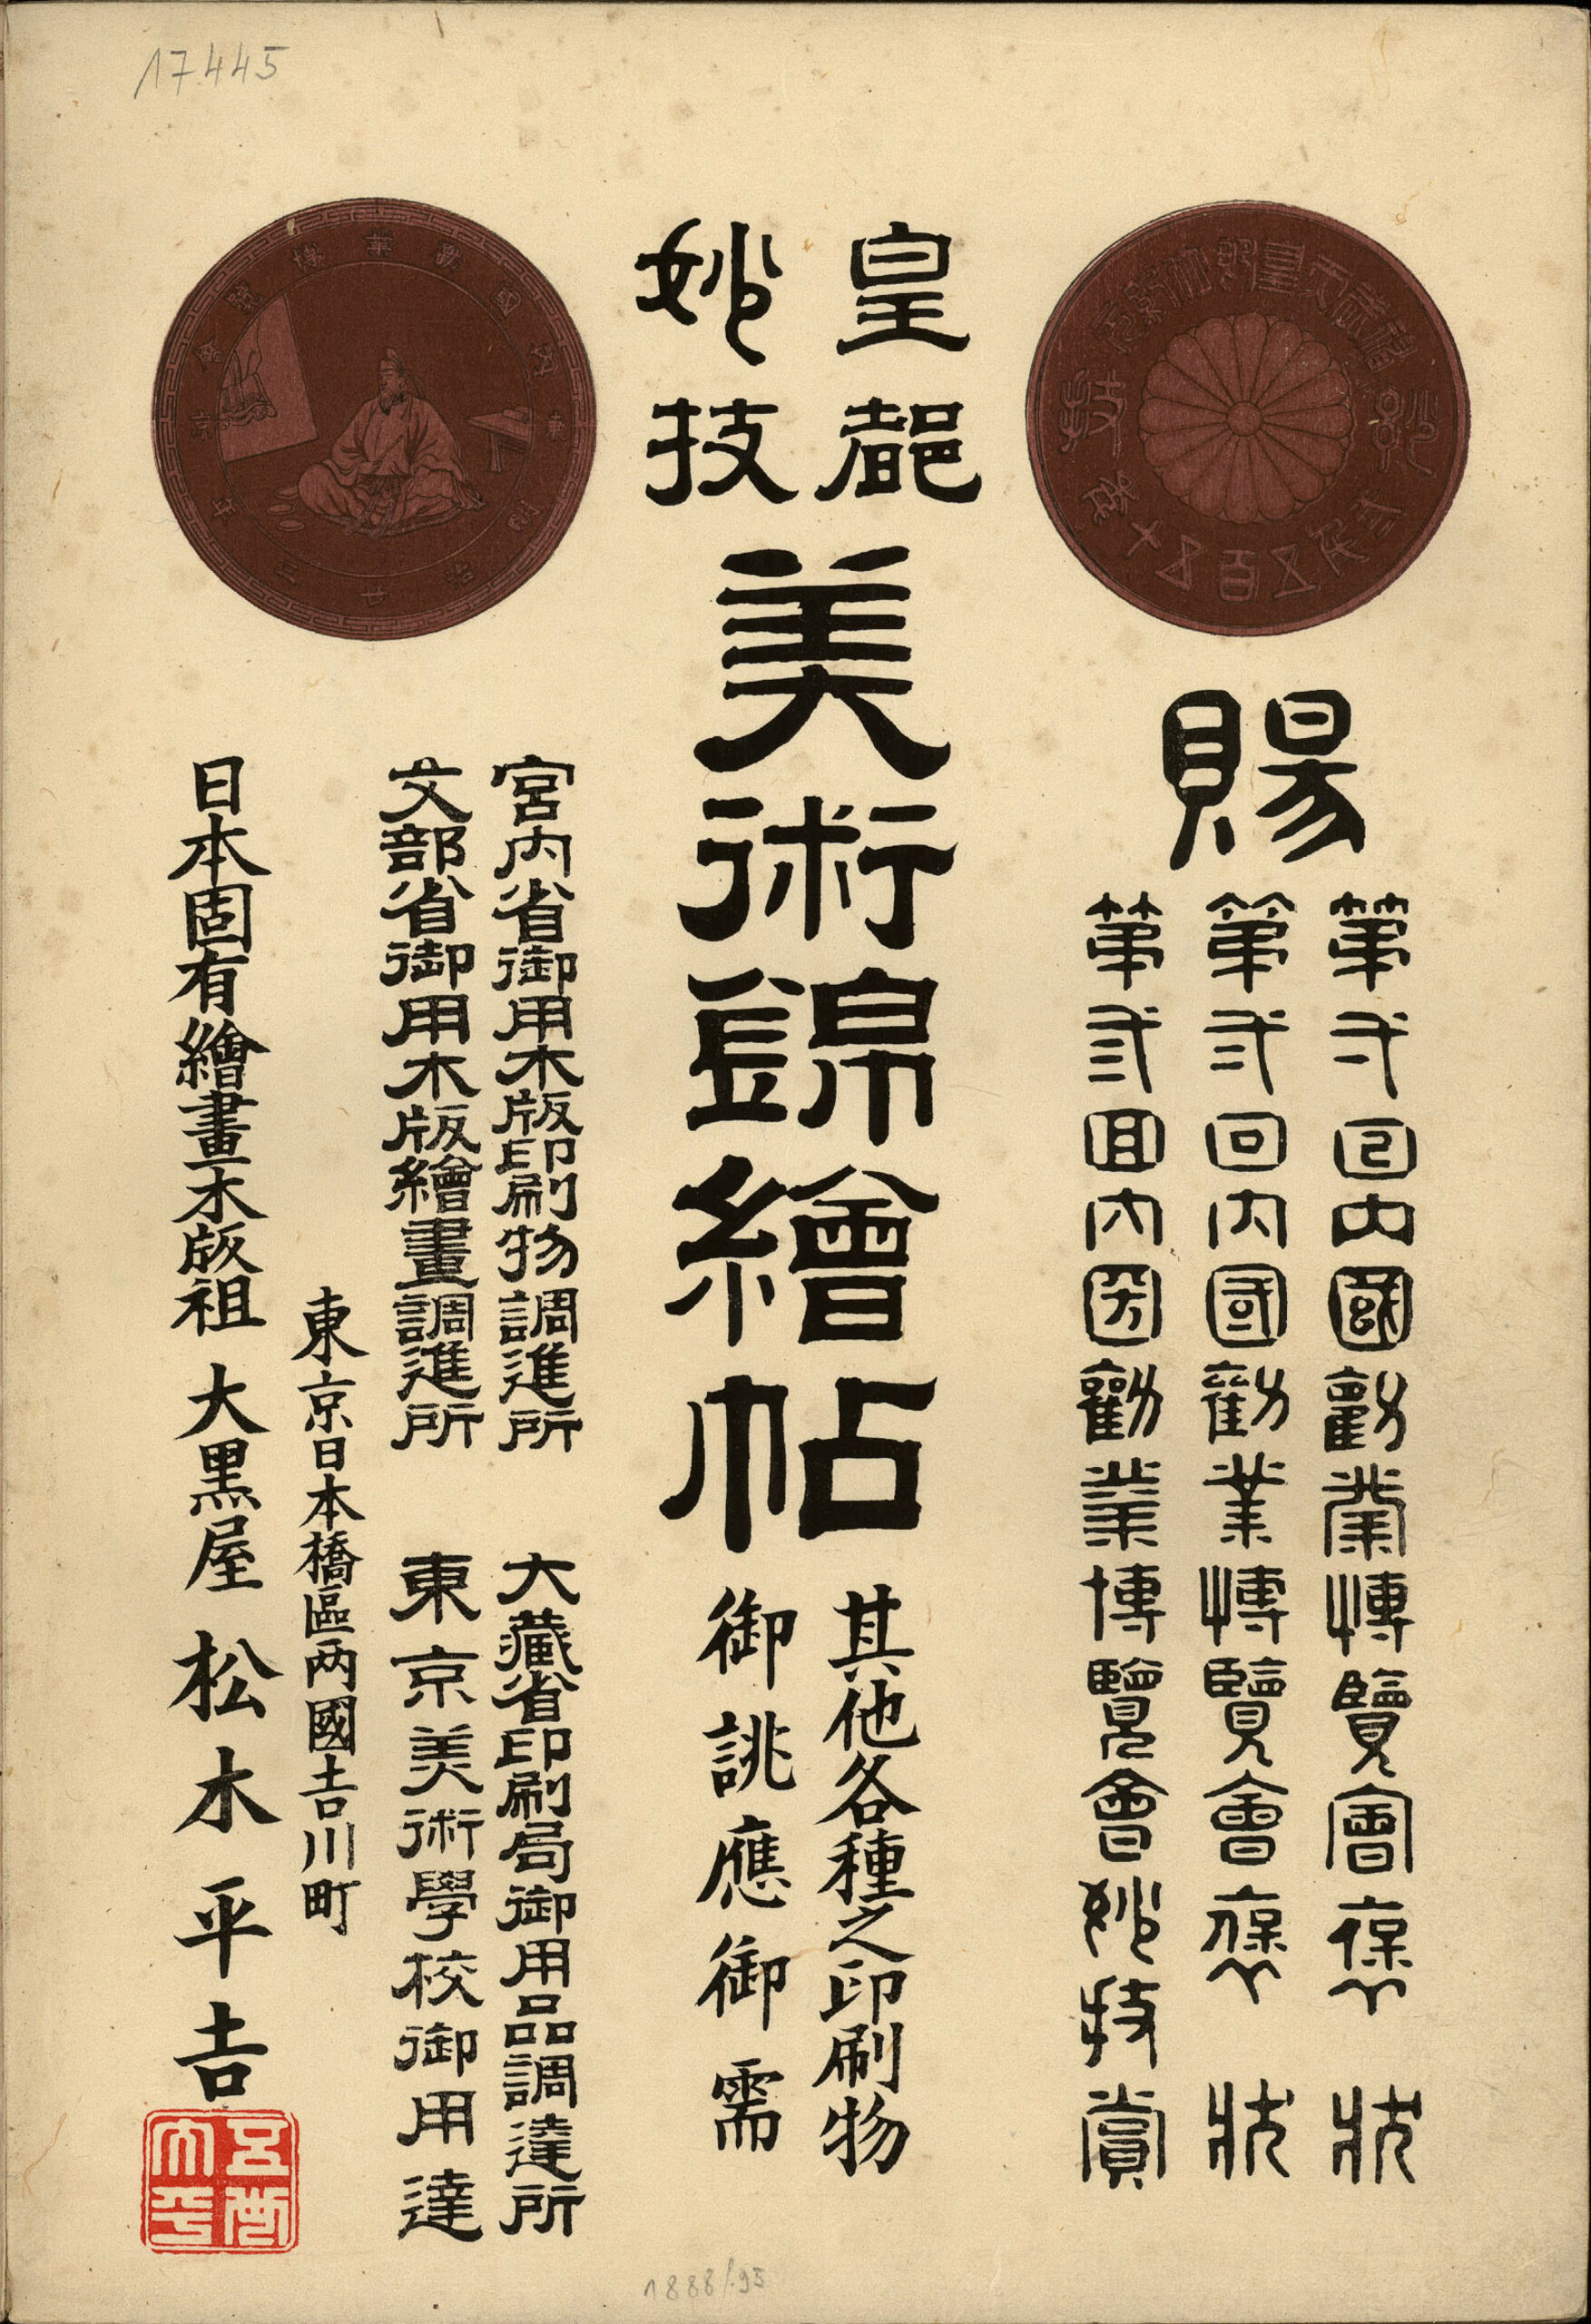 17445
賜
第弌回内國勸業博覽會褒状
第弍回内國勸業博覽會褒状
第弎回内國勸業博覽會妙技賞
皇都
妙技
美術錦繪帖
其他各種之印刷物
御誂應御需
内國勸業博覽會
宮内省御用木版印刷物調進所
大藏省印刷局御用品調達所
文部省御用木版繪畫調進所
東京美術學校御用達
東京日本橋區两國吉川町
日本固有繪畫木版祖 大黒屋 松木平吉
1888/.95